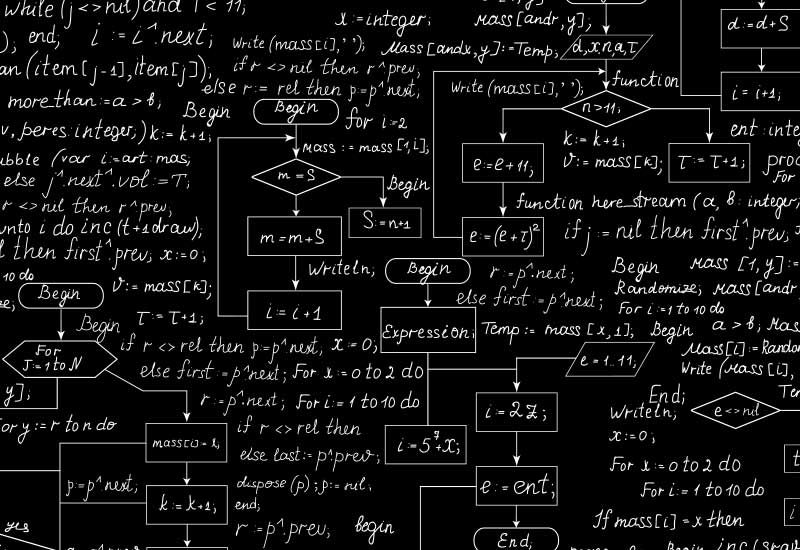 while (j <> nil) and i < 11;
x:=integer;
mass[andr, y];
d:=d+S
), end;
i := i^.next;
write (mass[i],' ');
Mass[andx,y]:=Temp;
d,x,n,a,τ
an (item[j-1],item[j]);
if r <> nel then r^prev;
function
else r:= rel then p:=p^.next;
Write (mass[i],' ');
more_than:=a > b,
Begin
Begin
for i:=2
n>11;
i = i+1;
v, peres:integer,)
k:= k+1;
mass := mass [1,i];
k:= k+1;
ent :integ
ubble (var i:=art:mas;
m = S
Begin
e:=e+11,
v:= mass[k];
τ:= τ+1;
proc
For
else j^.next^.vol:=T;
function here_stream (a, b: integer,
r <> nel then r^prev,
S:=n+1
unto i do inc (t+1draw);
m=m+S
e:=(e+τ)²
if j := nil then first^.prev,
l then first^.prev; x:=0;
Writeln,
Begin
r:=p^.next;
Begin
Mass [1, y]:=
10 do
Begin
v:= mass[k];
else first:=p^.next;
Randomize;
Mass[andr
i:= i+1
For i:=1 to 10 do
τ:= τ+1;
Begin
Expression;
Temp:= mass [x,1];
Begin
a > b,
Mass
For
J:=1 to N
if r <> rel then p:=p^.next,
x:= 0;
e = 1..11;
Mass[i]:=Random
else first:=p^.next;
For x:= 0 to 2 do
Write (Mass[i],
y];
r:=p^.next;
For i:= 1 to 10 do
i:= 2Z;
End;
Writeln;
e <> nil
For y:= r to n do
mass[i]:= 1,
if r <> rel then
i:=5⁷+X;
x:=0;
else last:=p^.prev;
For x:=0 to 2 do
p:=p^.next;
k:= k+1;
dispose (p); p:= nil,
e:= ent;
For i:= 1 to 10 do
end;
yes
r:=p^.prev,
begin
End;
If mass[i] = x then
Begin